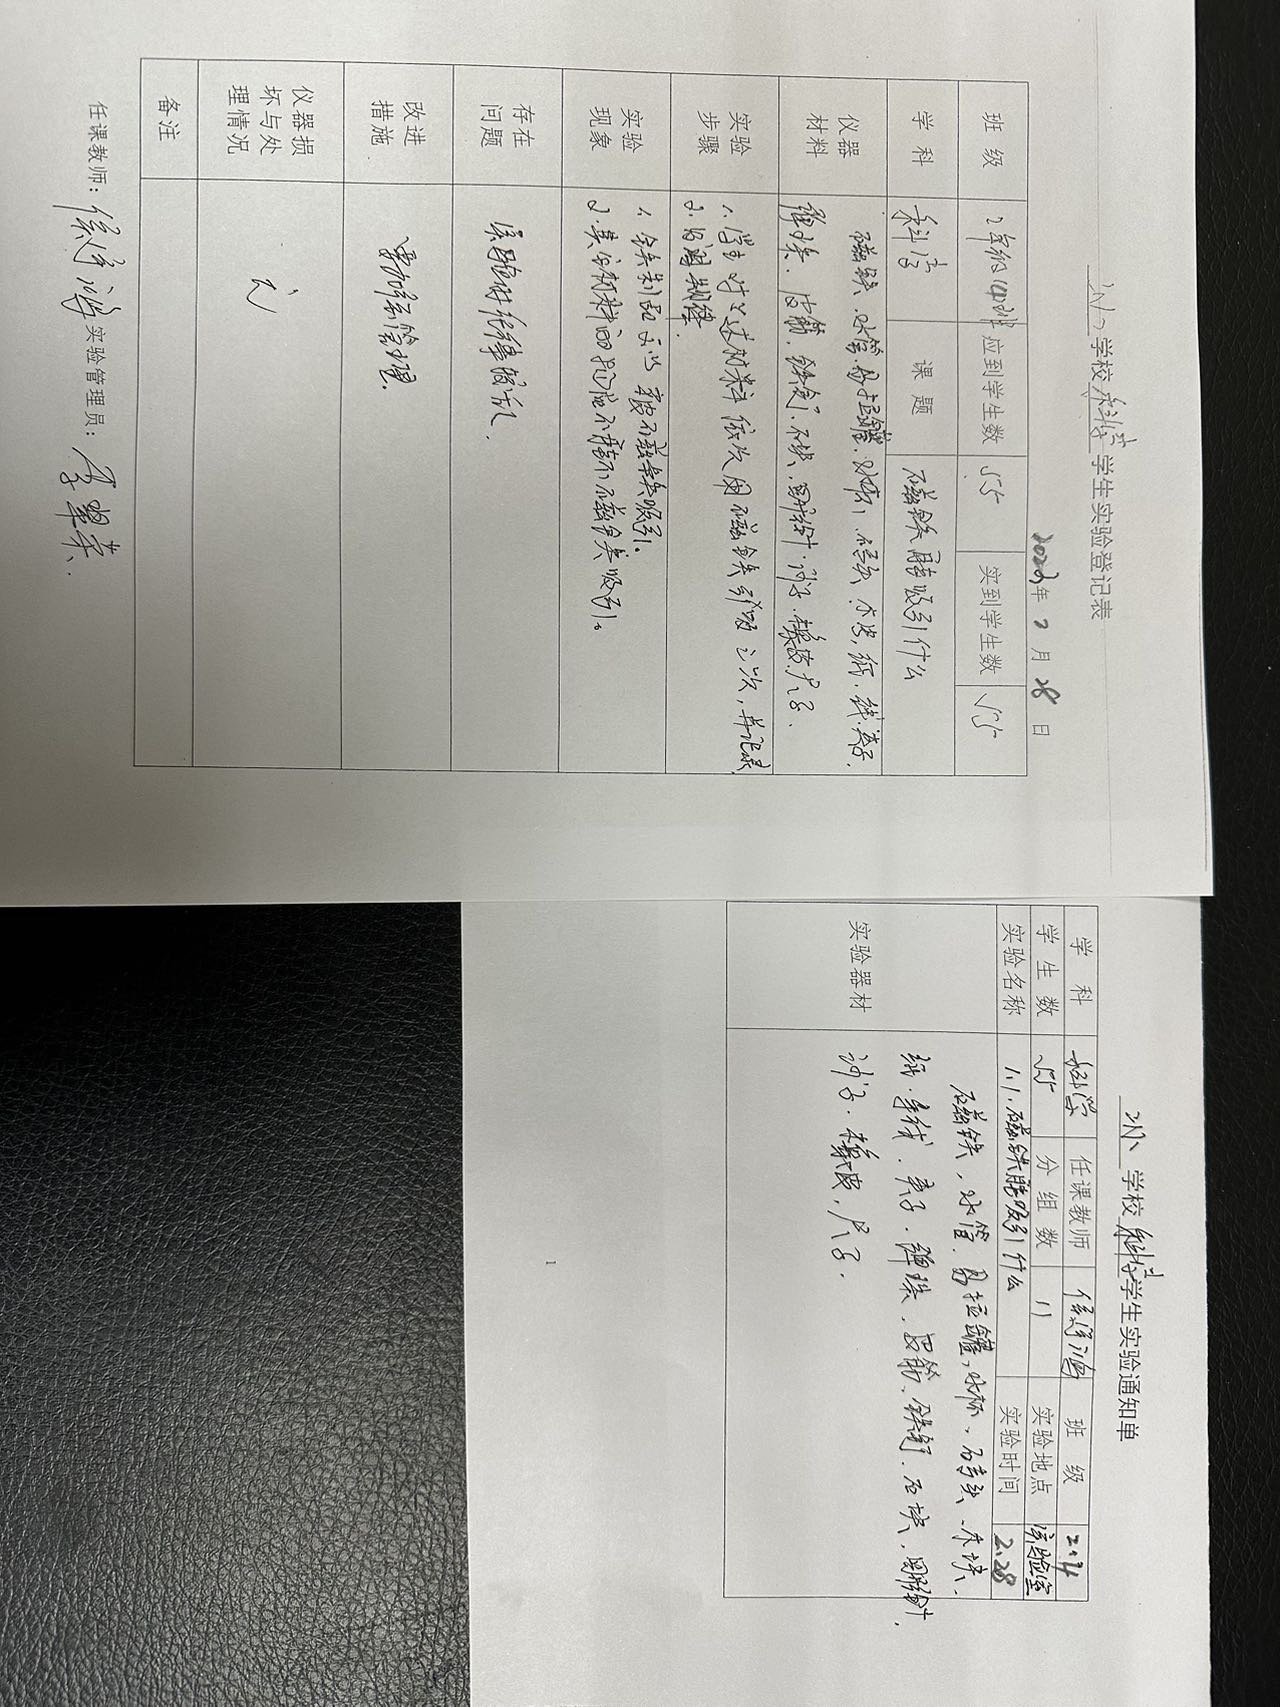 学校科学学生实验登记表
2022年2月28日
班级 2年级(4)班 应到学生数 55 实到学生数 55
学科 科学 课题 磁铁能吸引什么
仪器材料 磁铁、水管、易拉罐、水杯、石头、木块,纸、线、夹子、
弹珠、皮筋、铁钉、石块、回形针、沙子、橡皮、尺子、
实验步骤 1、学生对以上材料依次用磁铁吸三次,并记录
2、
实验现象 1、铁制品可以被磁铁吸引。
2、其它材料制品不能被磁铁吸引。
存在问题 实验时纪律较乱、
改进措施 要加强管理、
仪器损坏与处理情况 无
备注
任课教师: 实验管理员:
学校科学学生实验通知单
学科 科学 任课教师 班级 2.4
学生数 55 分组数 11 实验地点 实验室
实验名称 1.1、磁铁能吸引什么 实验时间 2.28
实验器材 磁铁,水管、易拉罐,水杯、石头、木块、
纸、毛线、夹子、弹珠、皮筋、铁钉、石块、回形针、
沙子、橡皮,尺子、
1